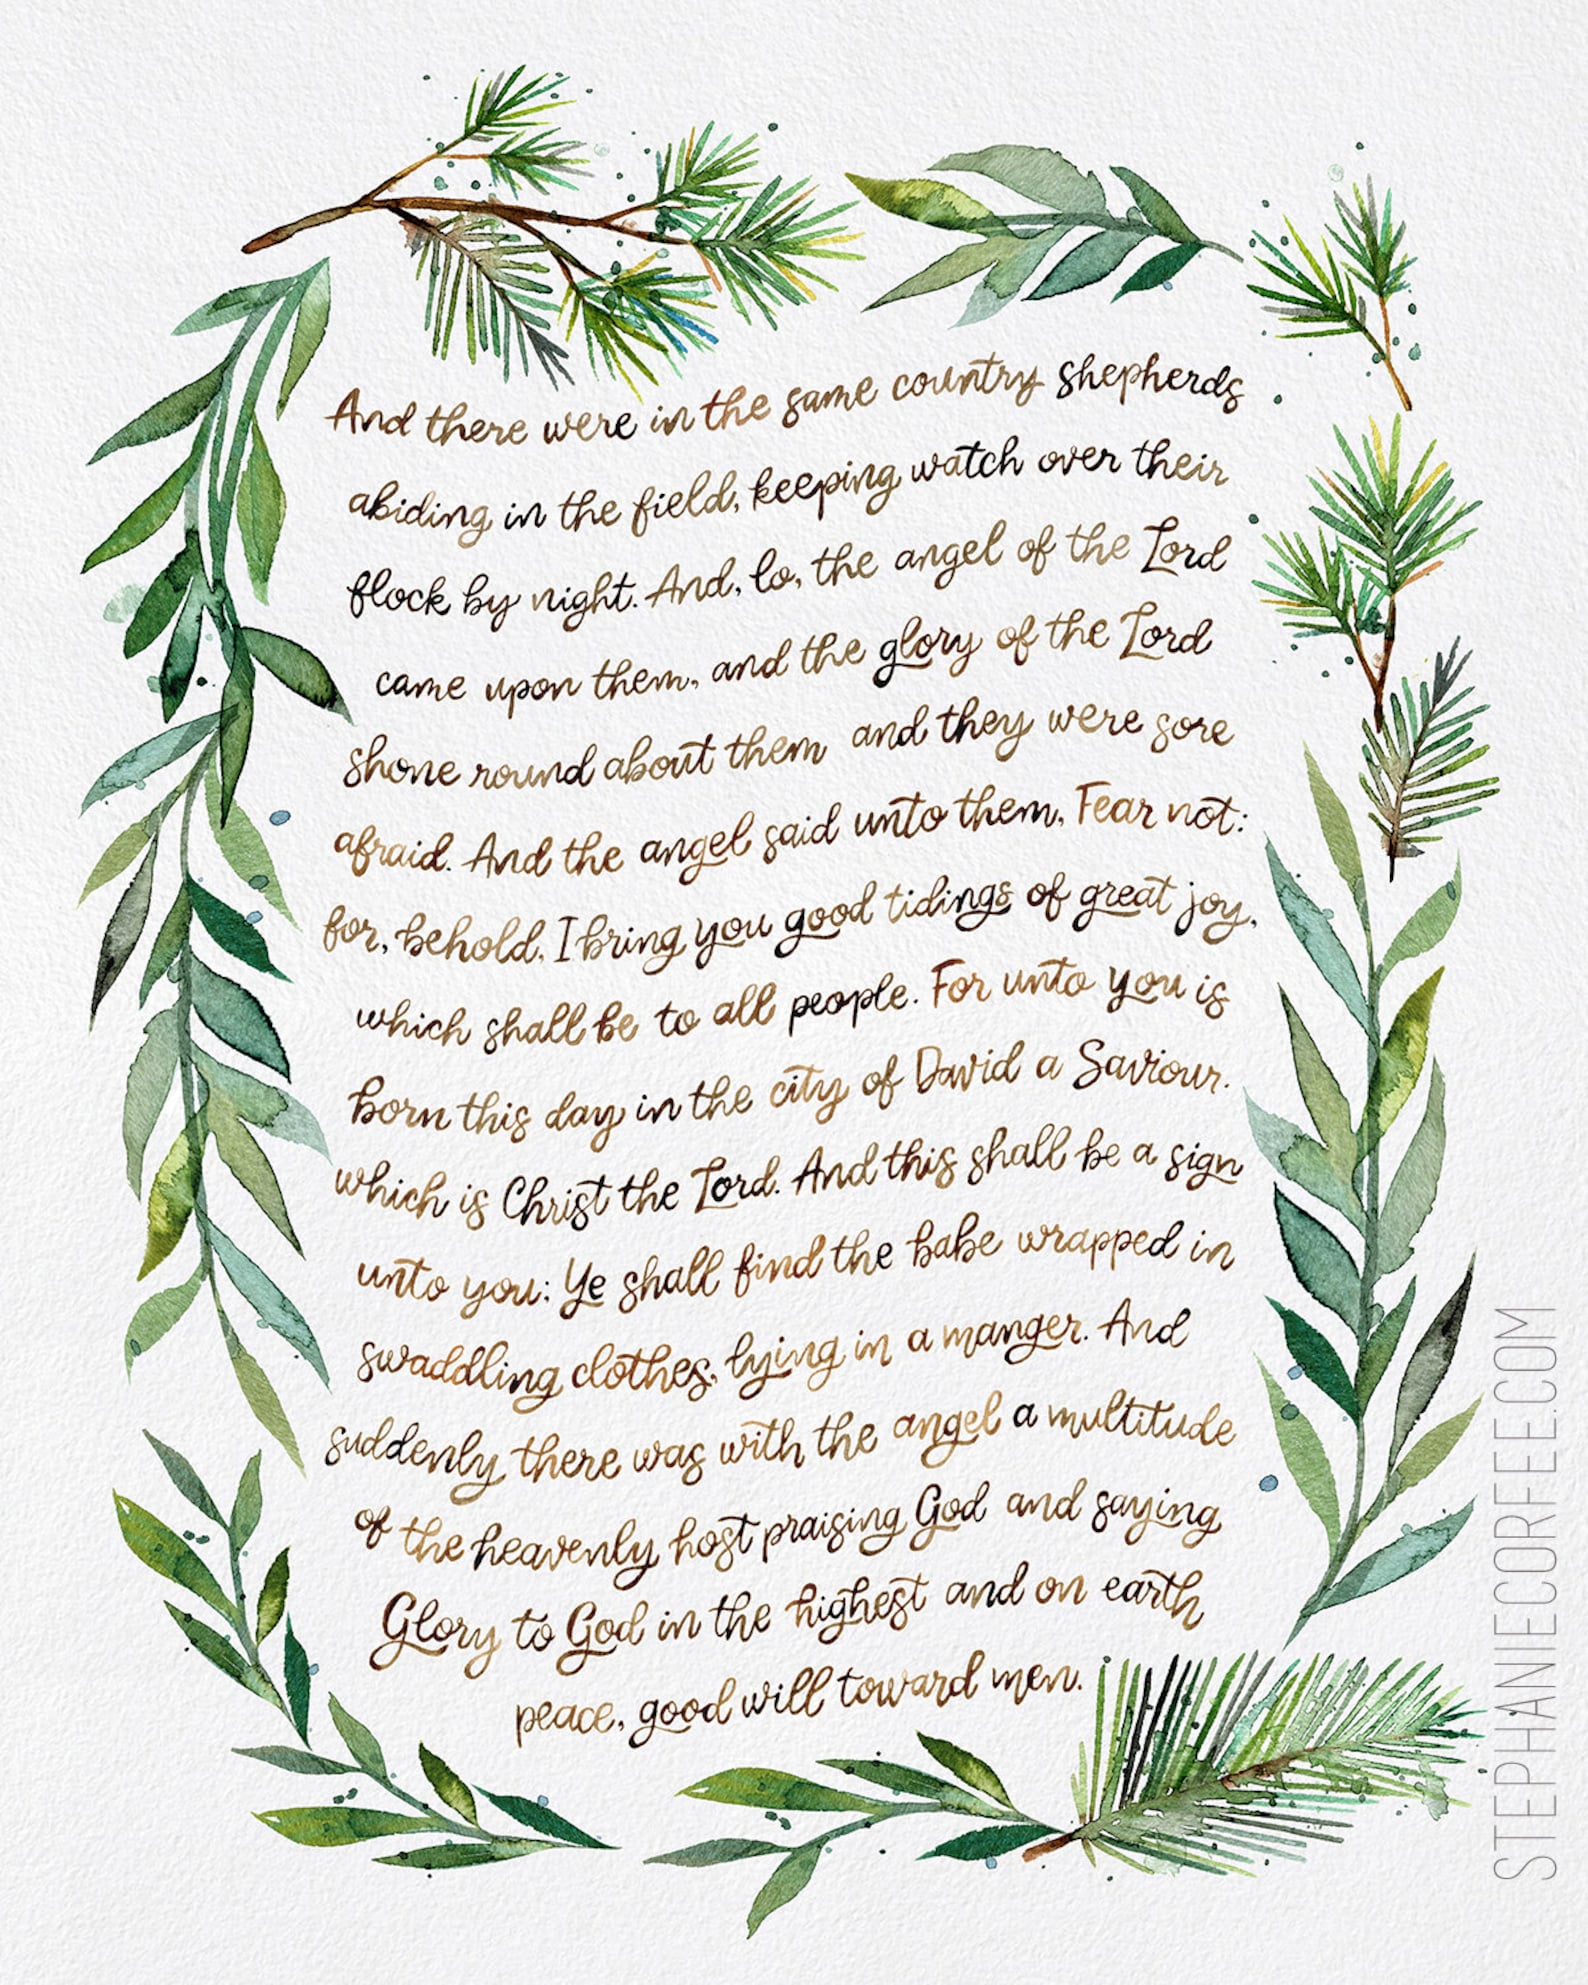 And there were in the same country shepherds
abiding in the field, keeping watch over their
flock by night. And, lo, the angel of the Lord
came upon them, and the glory of the Lord
shone round about them and they were sore
afraid. And the angel said unto them, Fear not:
for, behold, I bring you good tidings of great joy,
which shall be to all people. For unto you is
born this day in the city of David a Saviour.
which is Christ the Lord. And this shall be a sign
unto you: Ye shall find the babe wrapped in
swaddling clothes, lying in a manger. And
suddenly there was with the angel a multitude
of the heavenly host praising God and saying
Glory to God in the highest and on earth
peace, good will toward men.
STEPHANIECORFEE.COM